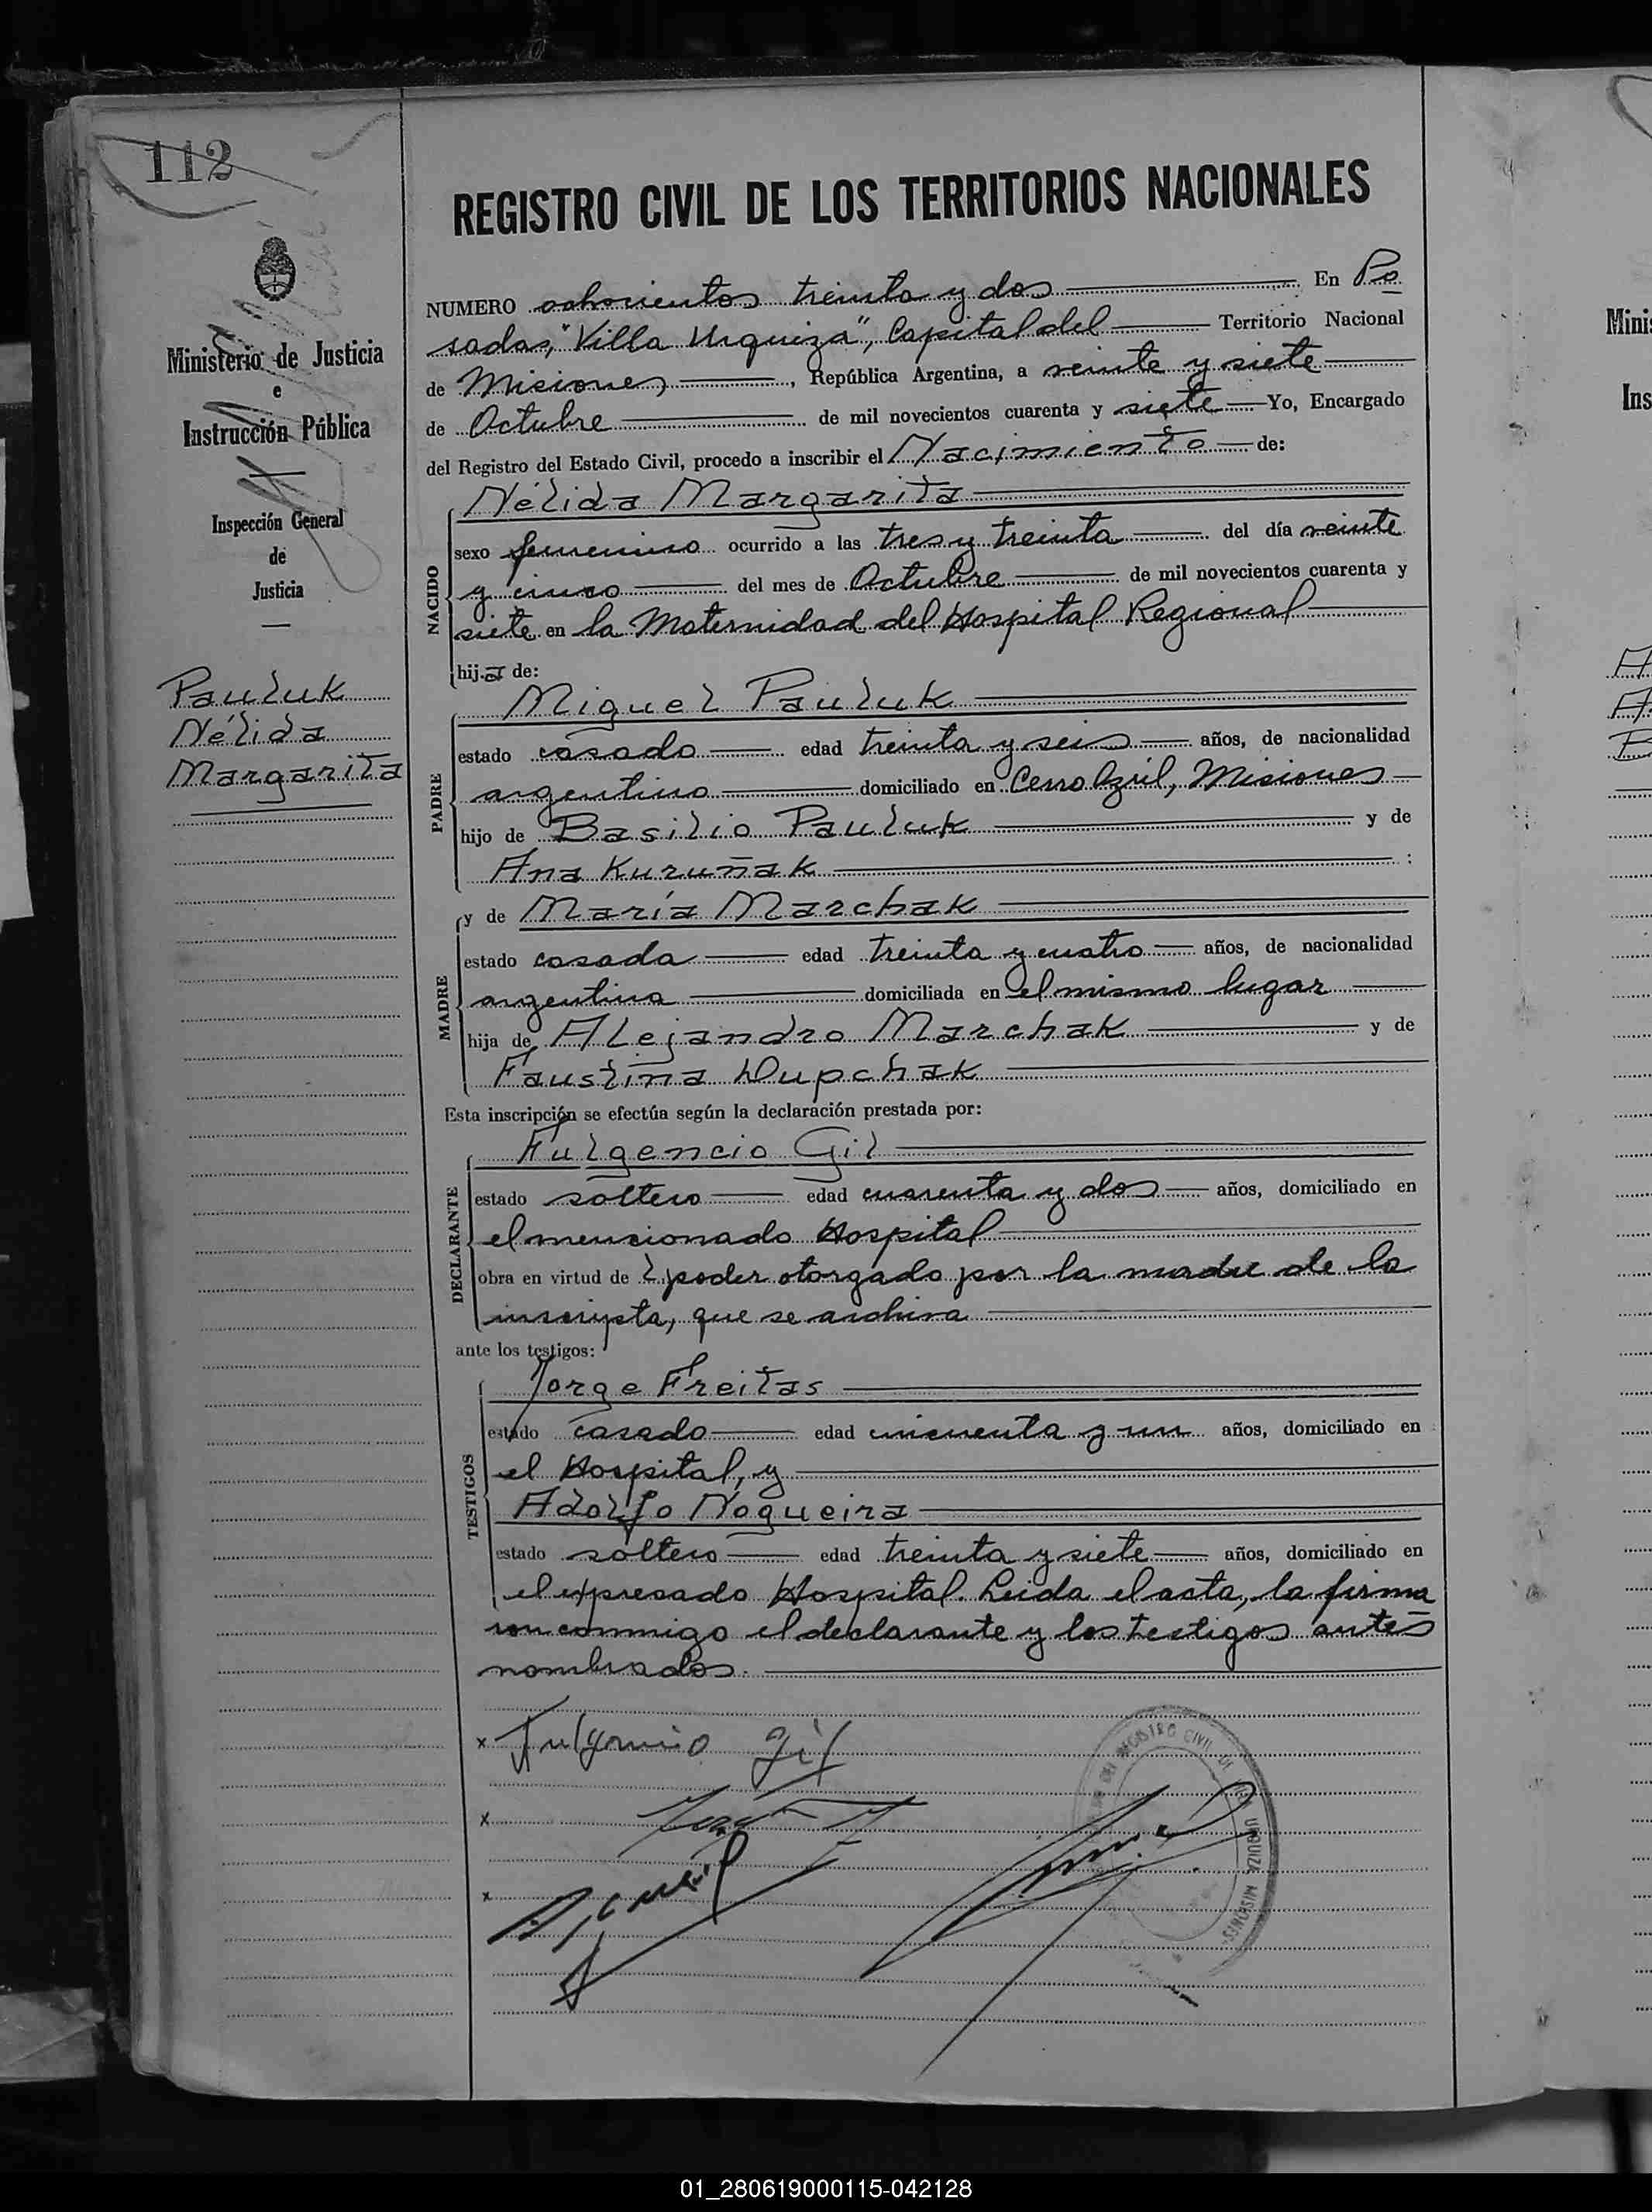 112
REGISTRO CIVIL DE LOS TERRITORIOS NACIONALES
Ministerio de Justicia
e
Instrucción Pública
Inspección General
de
Justicia
Pauluk
Nélida
Margarita
NUMERO ochocientos treinta y dos En Po
sadas, "Villa Urquiza", Capital del Territorio Nacional
de Misiones, República Argentina, a veinte y siete
de Octubre de mil novecientos cuarenta y siete Yo, Encargado
del Registro del Estado Civil, procedo a inscribir el Nacimiento de:
NACIDO
Nélida Margarita
sexo femenino ocurrido a las tres y treinta del día veinte
y cinco del mes de Octubre de mil novecientos cuarenta y
siete en la Maternidad del Hospital Regional
hija de:
PADRE
Miguel Pauluk
estado casado edad treinta y seis años, de nacionalidad
argentino domiciliado en Cerro Azúl, Misiones
hijo de Basilio Pauluk y de
Ana Kuruñak :
MADRE
y de María Marchak
estado casada edad treinta y cuatro años, de nacionalidad
argentina domiciliada en el mismo lugar
hija de Alejandro Marchak y de
Faustina Dupchak
Esta inscripción se efectúa según la declaración prestada por:
DECLARANTE
Fulgencio Gil
estado soltero edad cuarenta y dos años, domiciliado en
el mencionado Hospital
obra en virtud de poder otorgado por la madre de la
inscripta, que se archiva
ante los testigos:
TESTIGOS
Jorge Freitas
estado casado edad cincuenta y un años, domiciliado en
el Hospital, y
Adolfo Nogueira
estado soltero edad treinta y siete años, domiciliado en
el expresado Hospital. Leida el acta, la firma
con conmigo el declarante y los testigos antes
nombrados.
x Fulgencio Gil
x
x
REGISTRO CIVIL URQUIZA MISIONES
Mini
Ins
01_280619000115-042128